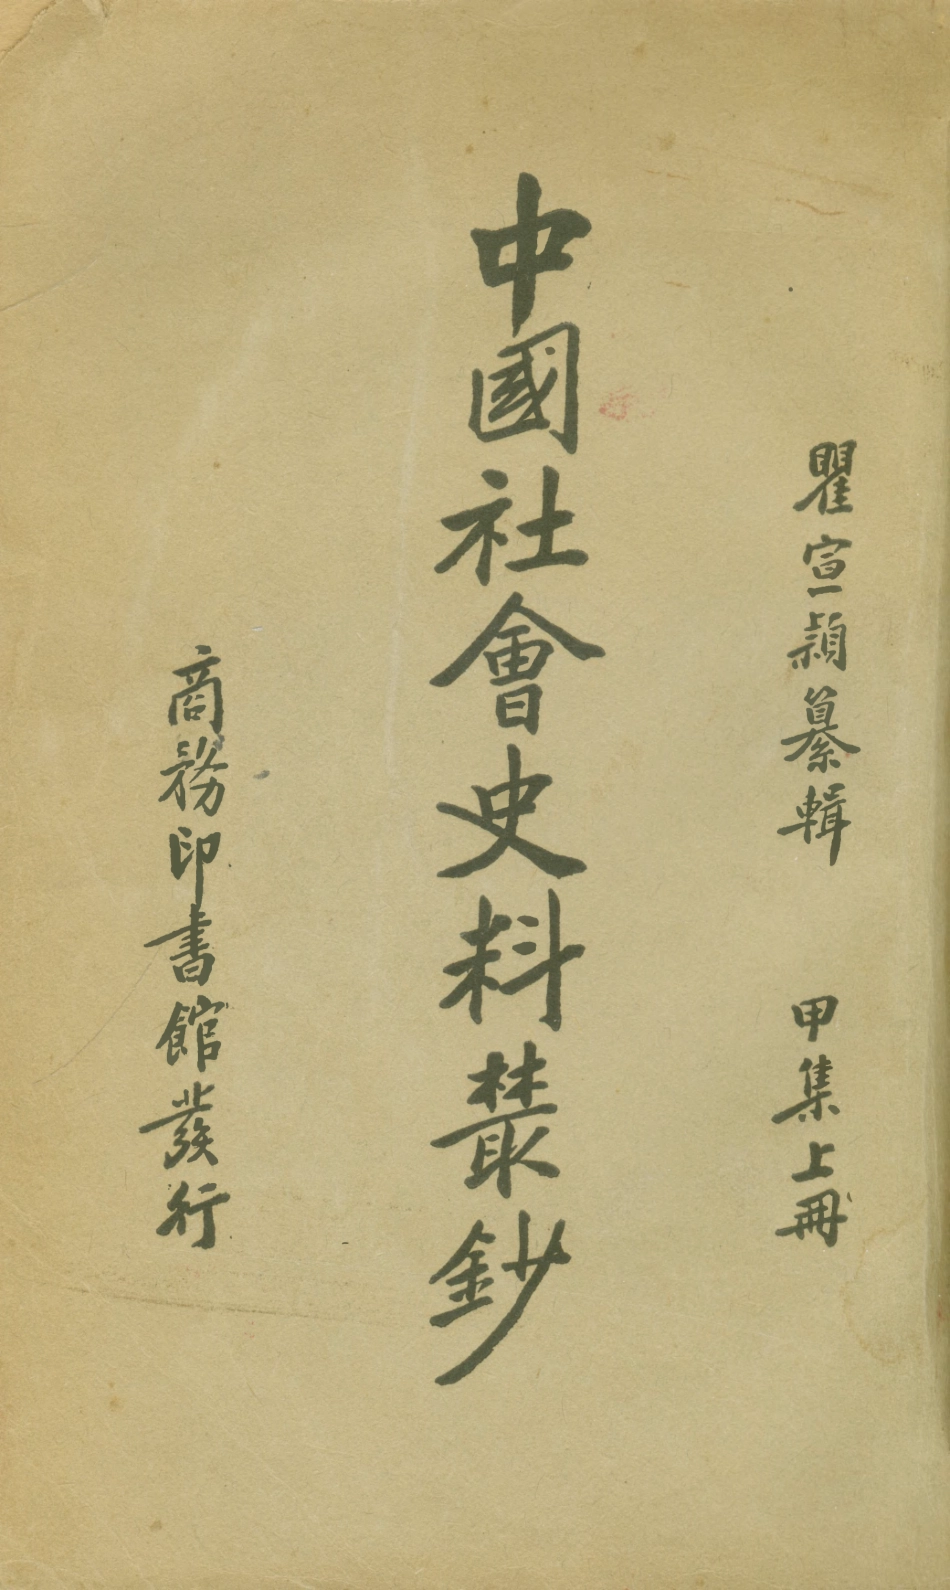 瞿宣穎纂輯　甲集上冊
中國社會史料叢鈔
商務印書館發行